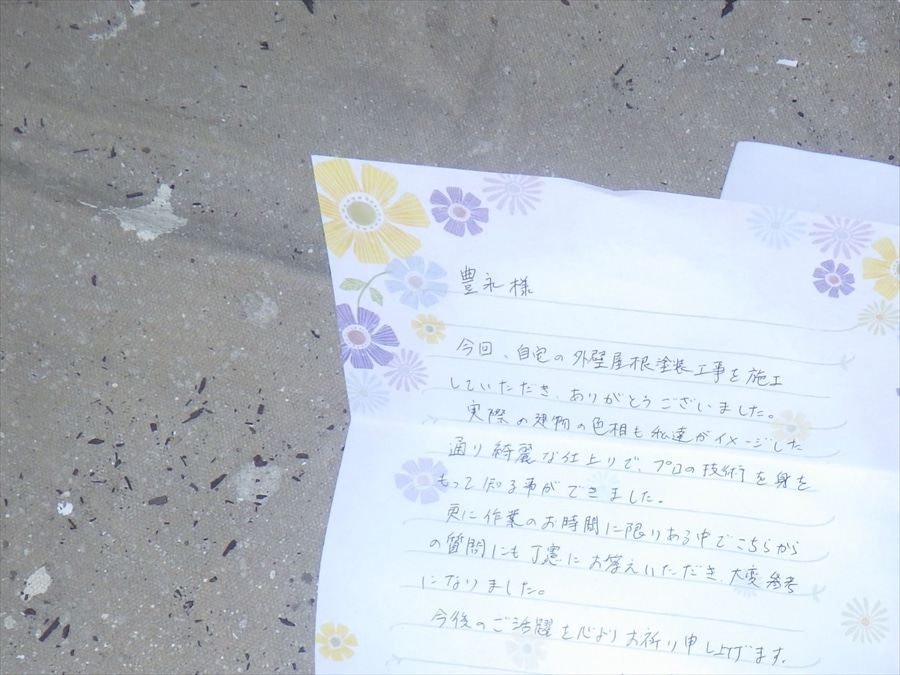 豊永様
今回、自宅の外壁屋根塗装工事を施工
していただき、ありがとうございました。
実際の建物の色相も私達がイメージした
通り綺麗な仕上りで、プロの技術を身を
もって知る事ができました。
更に作業のお時間に限りある中でこちらから
の質問にも丁寧にお答えいただき、大変参考
になりました。
今後のご活躍を心よりお祈り申し上げます。